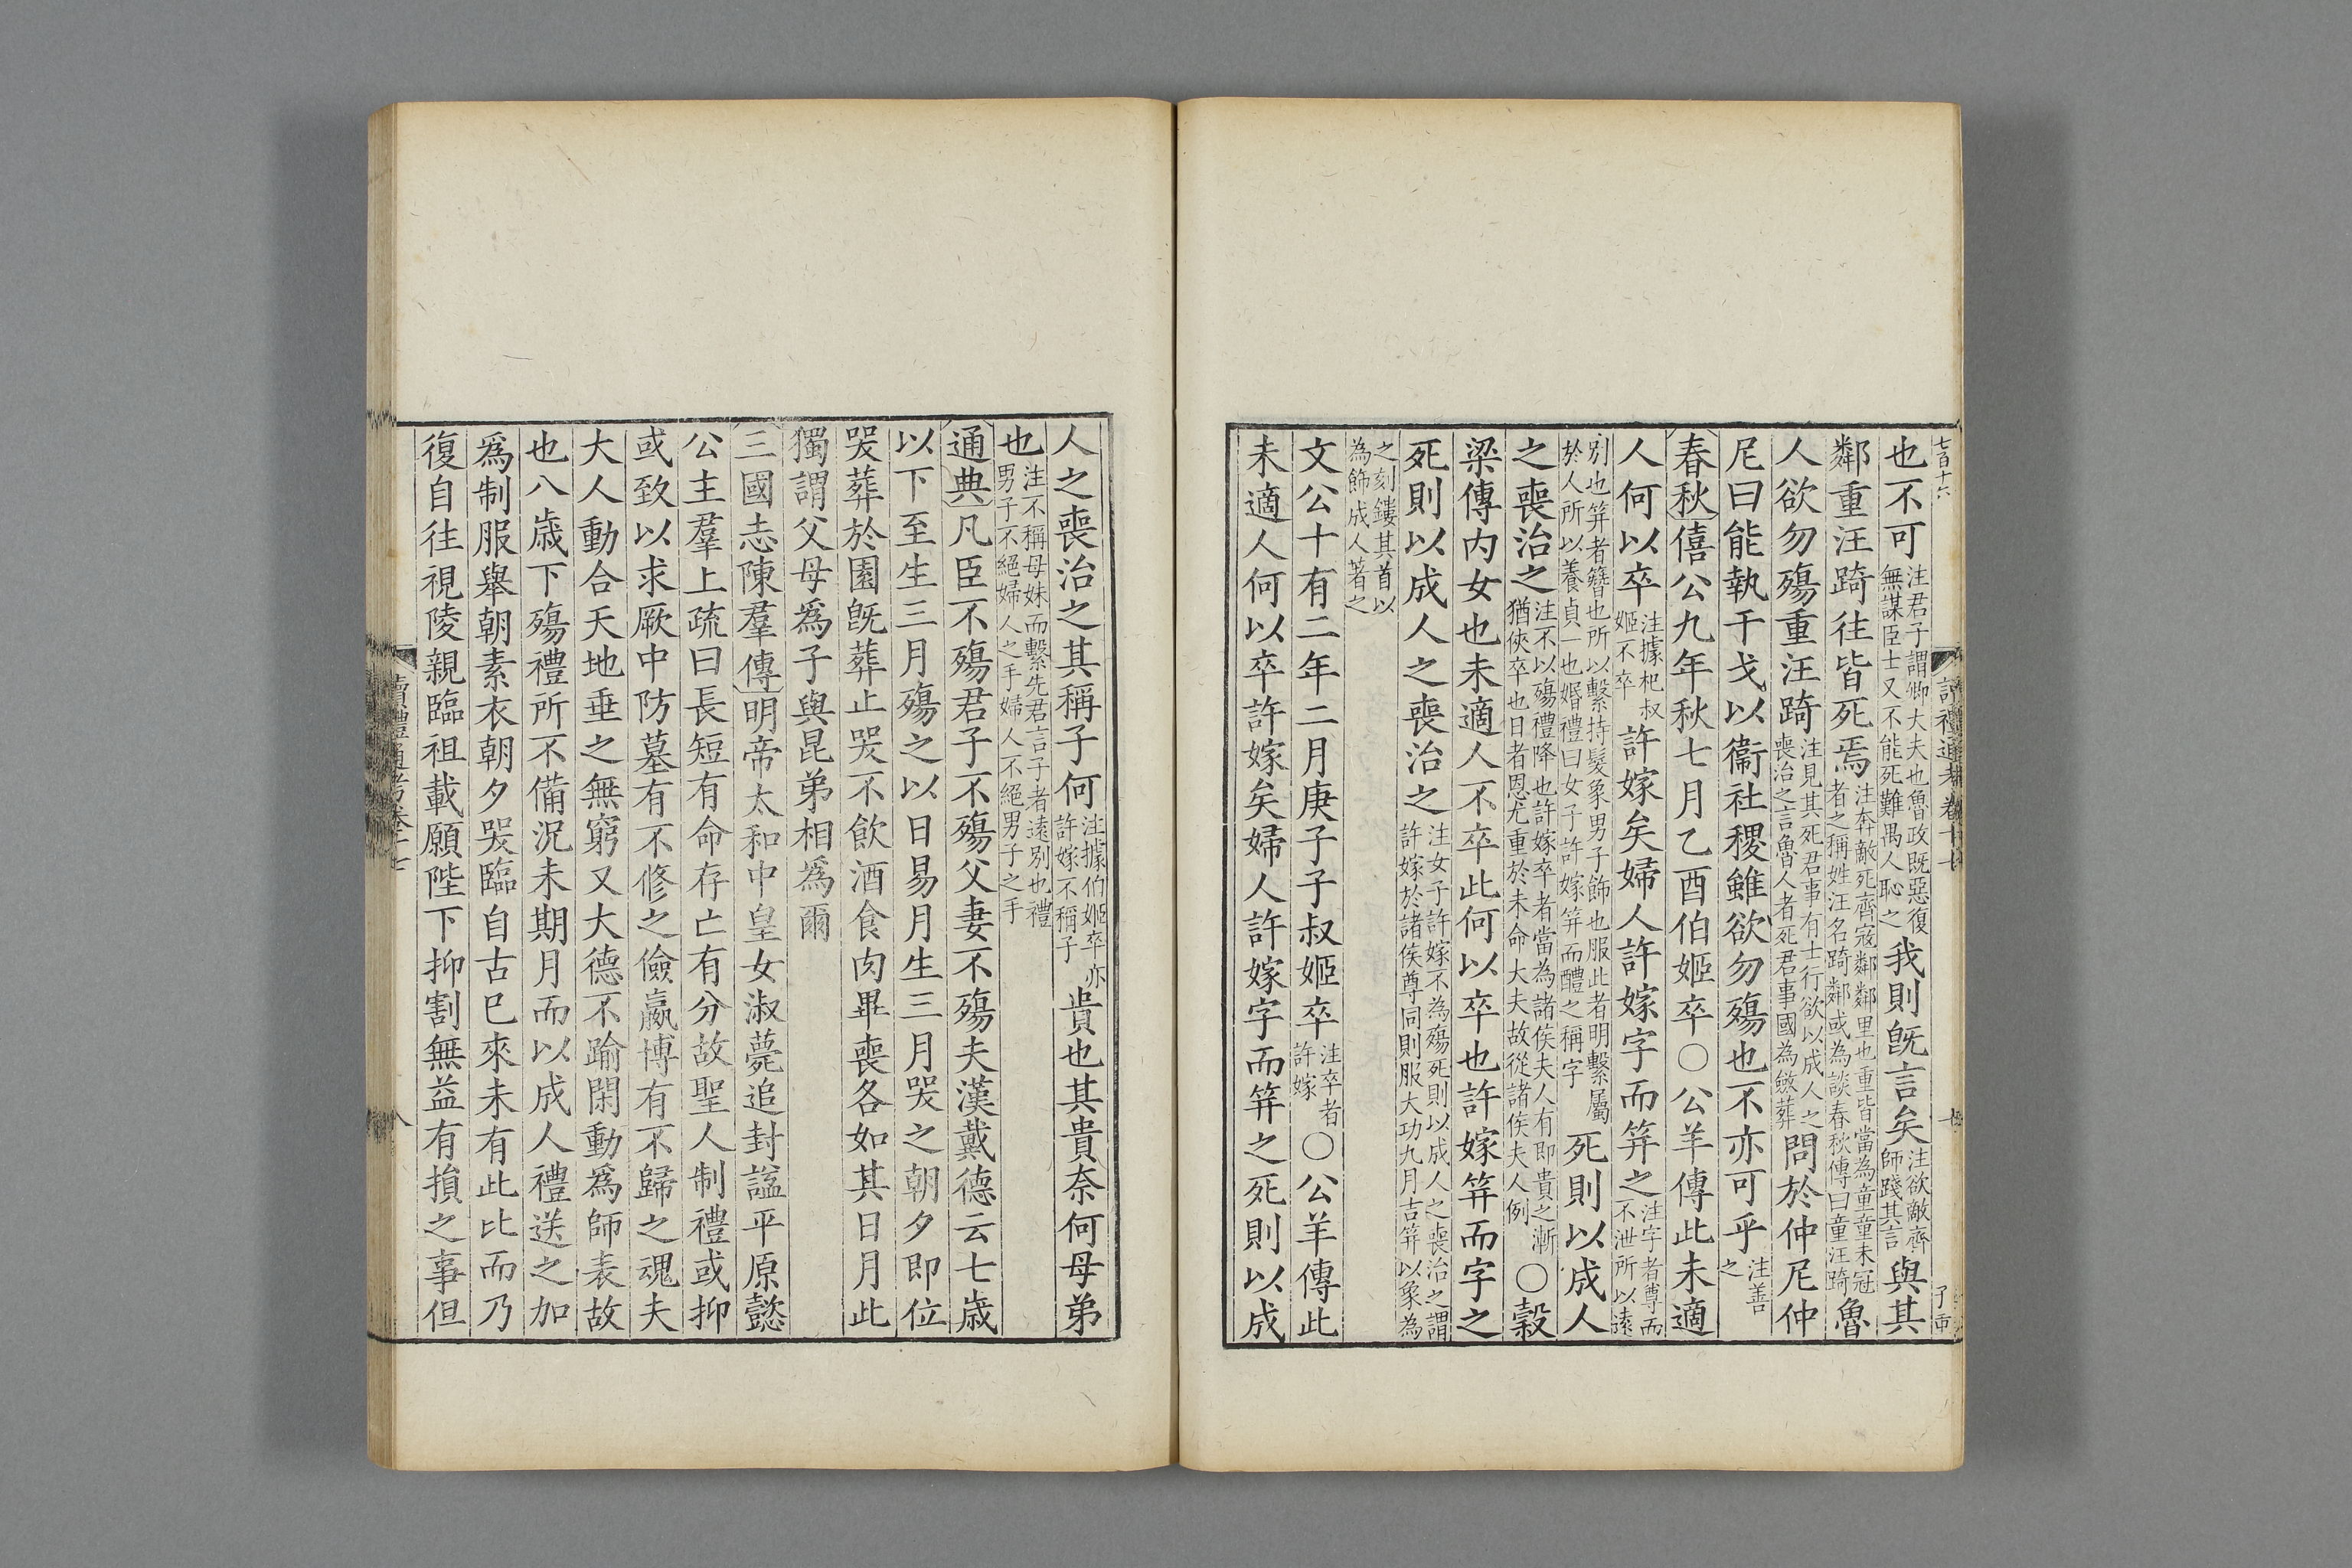 七百十六
也不可注君子謂卿大夫也魯政既惡復無謀臣士又不能死難禺人恥之我則既言矣注欲敵齊師踐其言與其
鄰重汪踦往皆死焉注奔敵死齊寇鄰鄰里也重皆當為童童未冠者之稱姓汪名踦鄰或為談春秋傳曰童汪踦魯
人欲勿殤重汪踦注見其死君事有士行欲以成人之喪治之言魯人者死君事國為斂葬問於仲尼仲
尼曰能執干戈以衞社稷雖欲勿殤也不亦可乎注善之
春秋僖公九年秋七月乙酉伯姬卒○公羊傳此未適
人何以卒注據杞叔姬不卒許嫁矣婦人許嫁字而笄之注字者尊而不泄所以遠
別也笄者簪也所以繫持髮象男子飾也服此者明繫屬於人所以養貞一也婚禮曰女子許嫁笄而醴之稱字死則以成人
之喪治之注不以殤禮降也許嫁卒者當為諸侯夫人有即貴之漸猶俠卒也日者恩尤重於未命大夫故從諸侯夫人例○穀
梁傳內女也未適人不卒此何以卒也許嫁笄而字之
死則以成人之喪治之注女子許嫁不為殤死則以成人之喪治之謂許嫁於諸侯尊同則服大功九月吉笄以象為
之刻鏤其首以為飾成人著之
文公十有二年二月庚子子叔姬卒注卒者許嫁○公羊傳此
未適人何以卒許嫁矣婦人許嫁字而笄之死則以成
人之喪治之其稱子何注據伯姬卒亦許嫁不稱子貴也其貴奈何母弟
也注不稱母妹而繫先君言子者遠別也禮男子不絕婦人之手婦人不絕男子之手
通典凡臣不殤君子不殤父妻不殤夫漢戴德云七歲
以下至生三月殤之以日易月生三月哭之朝夕即位
哭葬於園既葬止哭不飲酒食肉畢喪各如其日月此
獨謂父母爲子與昆弟相爲爾
三國志陳羣傳明帝太和中皇女淑薨追封謚平原懿
公主羣上疏曰長短有命存亡有分故聖人制禮或抑
或致以求厥中防墓有不修之儉嬴博有不歸之魂夫
大人動合天地垂之無窮又大德不踰閑動爲師表故
也八歲下殤禮所不備況未期月而以成人禮送之加
爲制服舉朝素衣朝夕哭臨自古已來未有此比而乃
復自往視陵親臨祖載願陛下抑割無益有損之事但
讀禮通考卷十七
八